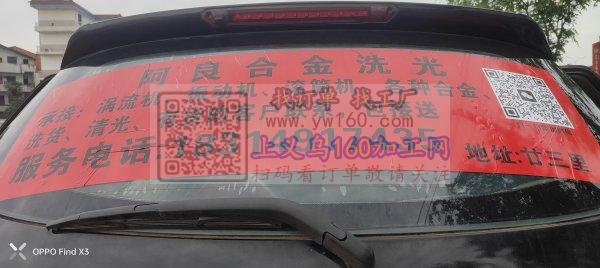 阿良合金洗光
承接:涡流机、振动机、滚筒机、各种合金、
洗货、清光、
服务电话:
地址:廿三里
找订单 找工厂
www.yw160.com
上义乌160加工网
扫码看订单敬请关注
OPPO Find X3